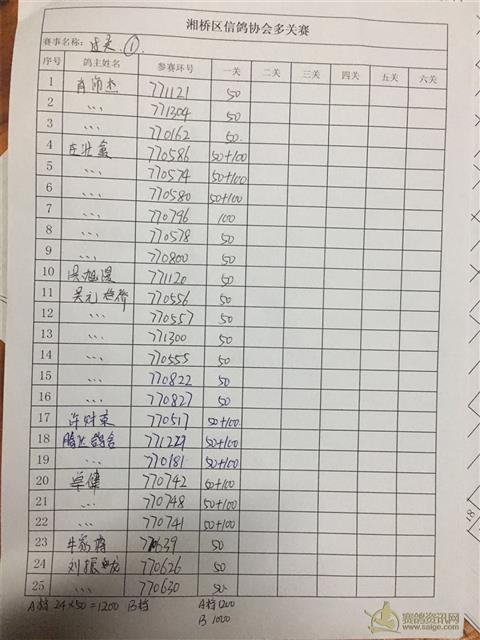 湘桥区信鸽协会多关赛
赛事名称: ①
序号 鸽主姓名 参赛环号 一关 二关 三关 四关 五关 六关
1 771121 50
2 〃 771304 50
3 〃 770162 50
4 庄壮鑫 770586 50+100
5 〃 770574 50+100
6 〃 770580 50+100
7 〃 770796 100
8 〃 770578 50
9 〃 770800 50
10 771120 50
11 吴元 770556 50
12 〃 770557 50
13 〃 771300 50
14 〃 770555 50
15 〃 770822 50
16 〃 770827 50
17 许财束 770517 50+100
18 腾飞鸽舍 771229 50+100
19 〃 770181 50+100
20 770742 50+100
21 〃 770748 50+100
22 〃 770741 50+100
23 770639 50
24 刘振 770626 50
25 〃 770630 50
A档 24×50=1200 B档 A档1200
B 1000
18
赛鸽资讯网
www.saige.com